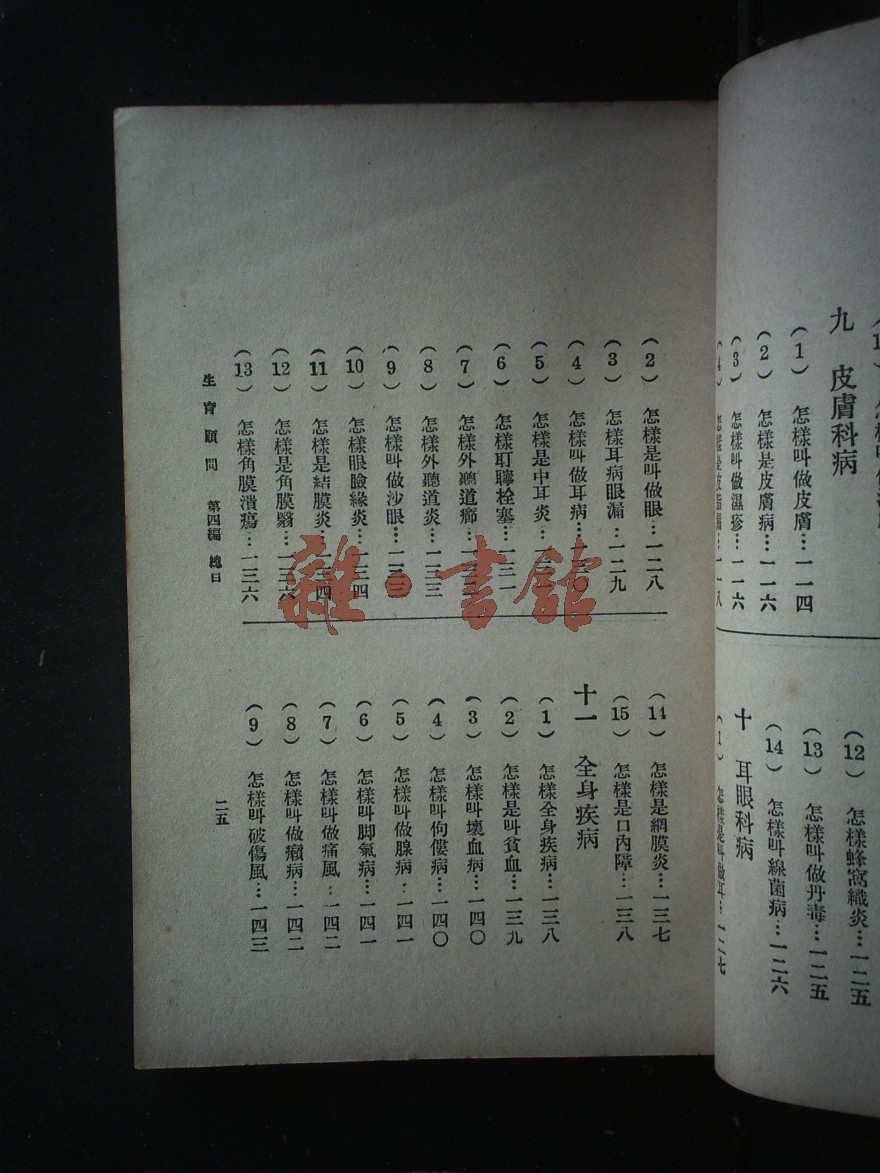 九 皮膚科病
(1) 怎樣叫做皮膚…一一四
(2) 怎樣是皮膚病…一一六
(3) 怎樣叫做濕疹…一一六
(12) 怎樣蜂窩織炎…一二五
(13) 怎樣叫做丹毒…一二五
(14) 怎樣叫線菌病…一二六
十 耳眼科病
(1) 怎樣是叫做耳…一二七
(2) 怎樣是叫做眼…一二八
(3) 怎樣耳病眼漏…一二九
(4) 怎樣叫做耳病…一三〇
(5) 怎樣是中耳炎…一三
(6) 怎樣耵聹栓塞…一三一
(7) 怎樣外聽道癤…一三二
(8) 怎樣外聽道炎…一三三
(9) 怎樣叫做沙眼…一三三
(10) 怎樣眼瞼緣炎…一三四
(11) 怎樣是結膜炎…一三四
(12) 怎樣是角膜翳…一三六
(13) 怎樣角膜潰瘍…一三六
(14) 怎樣是網膜炎…一三七
(15) 怎樣是口內障…一三八
十一 全身疾病
(1) 怎樣全身疾病…一三八
(2) 怎樣是叫貧血…一三九
(3) 怎樣叫壞血病…一四〇
(4) 怎樣叫佝僂病…一四〇
(5) 怎樣叫做腺病…一四一
(6) 怎樣叫脚氣病…一四一
(7) 怎樣叫做痛風…一四二
(8) 怎樣叫做癩病…一四二
(9) 怎樣叫破傷風…一四三
生育顧問 第四編 總目
二五
雜·書館